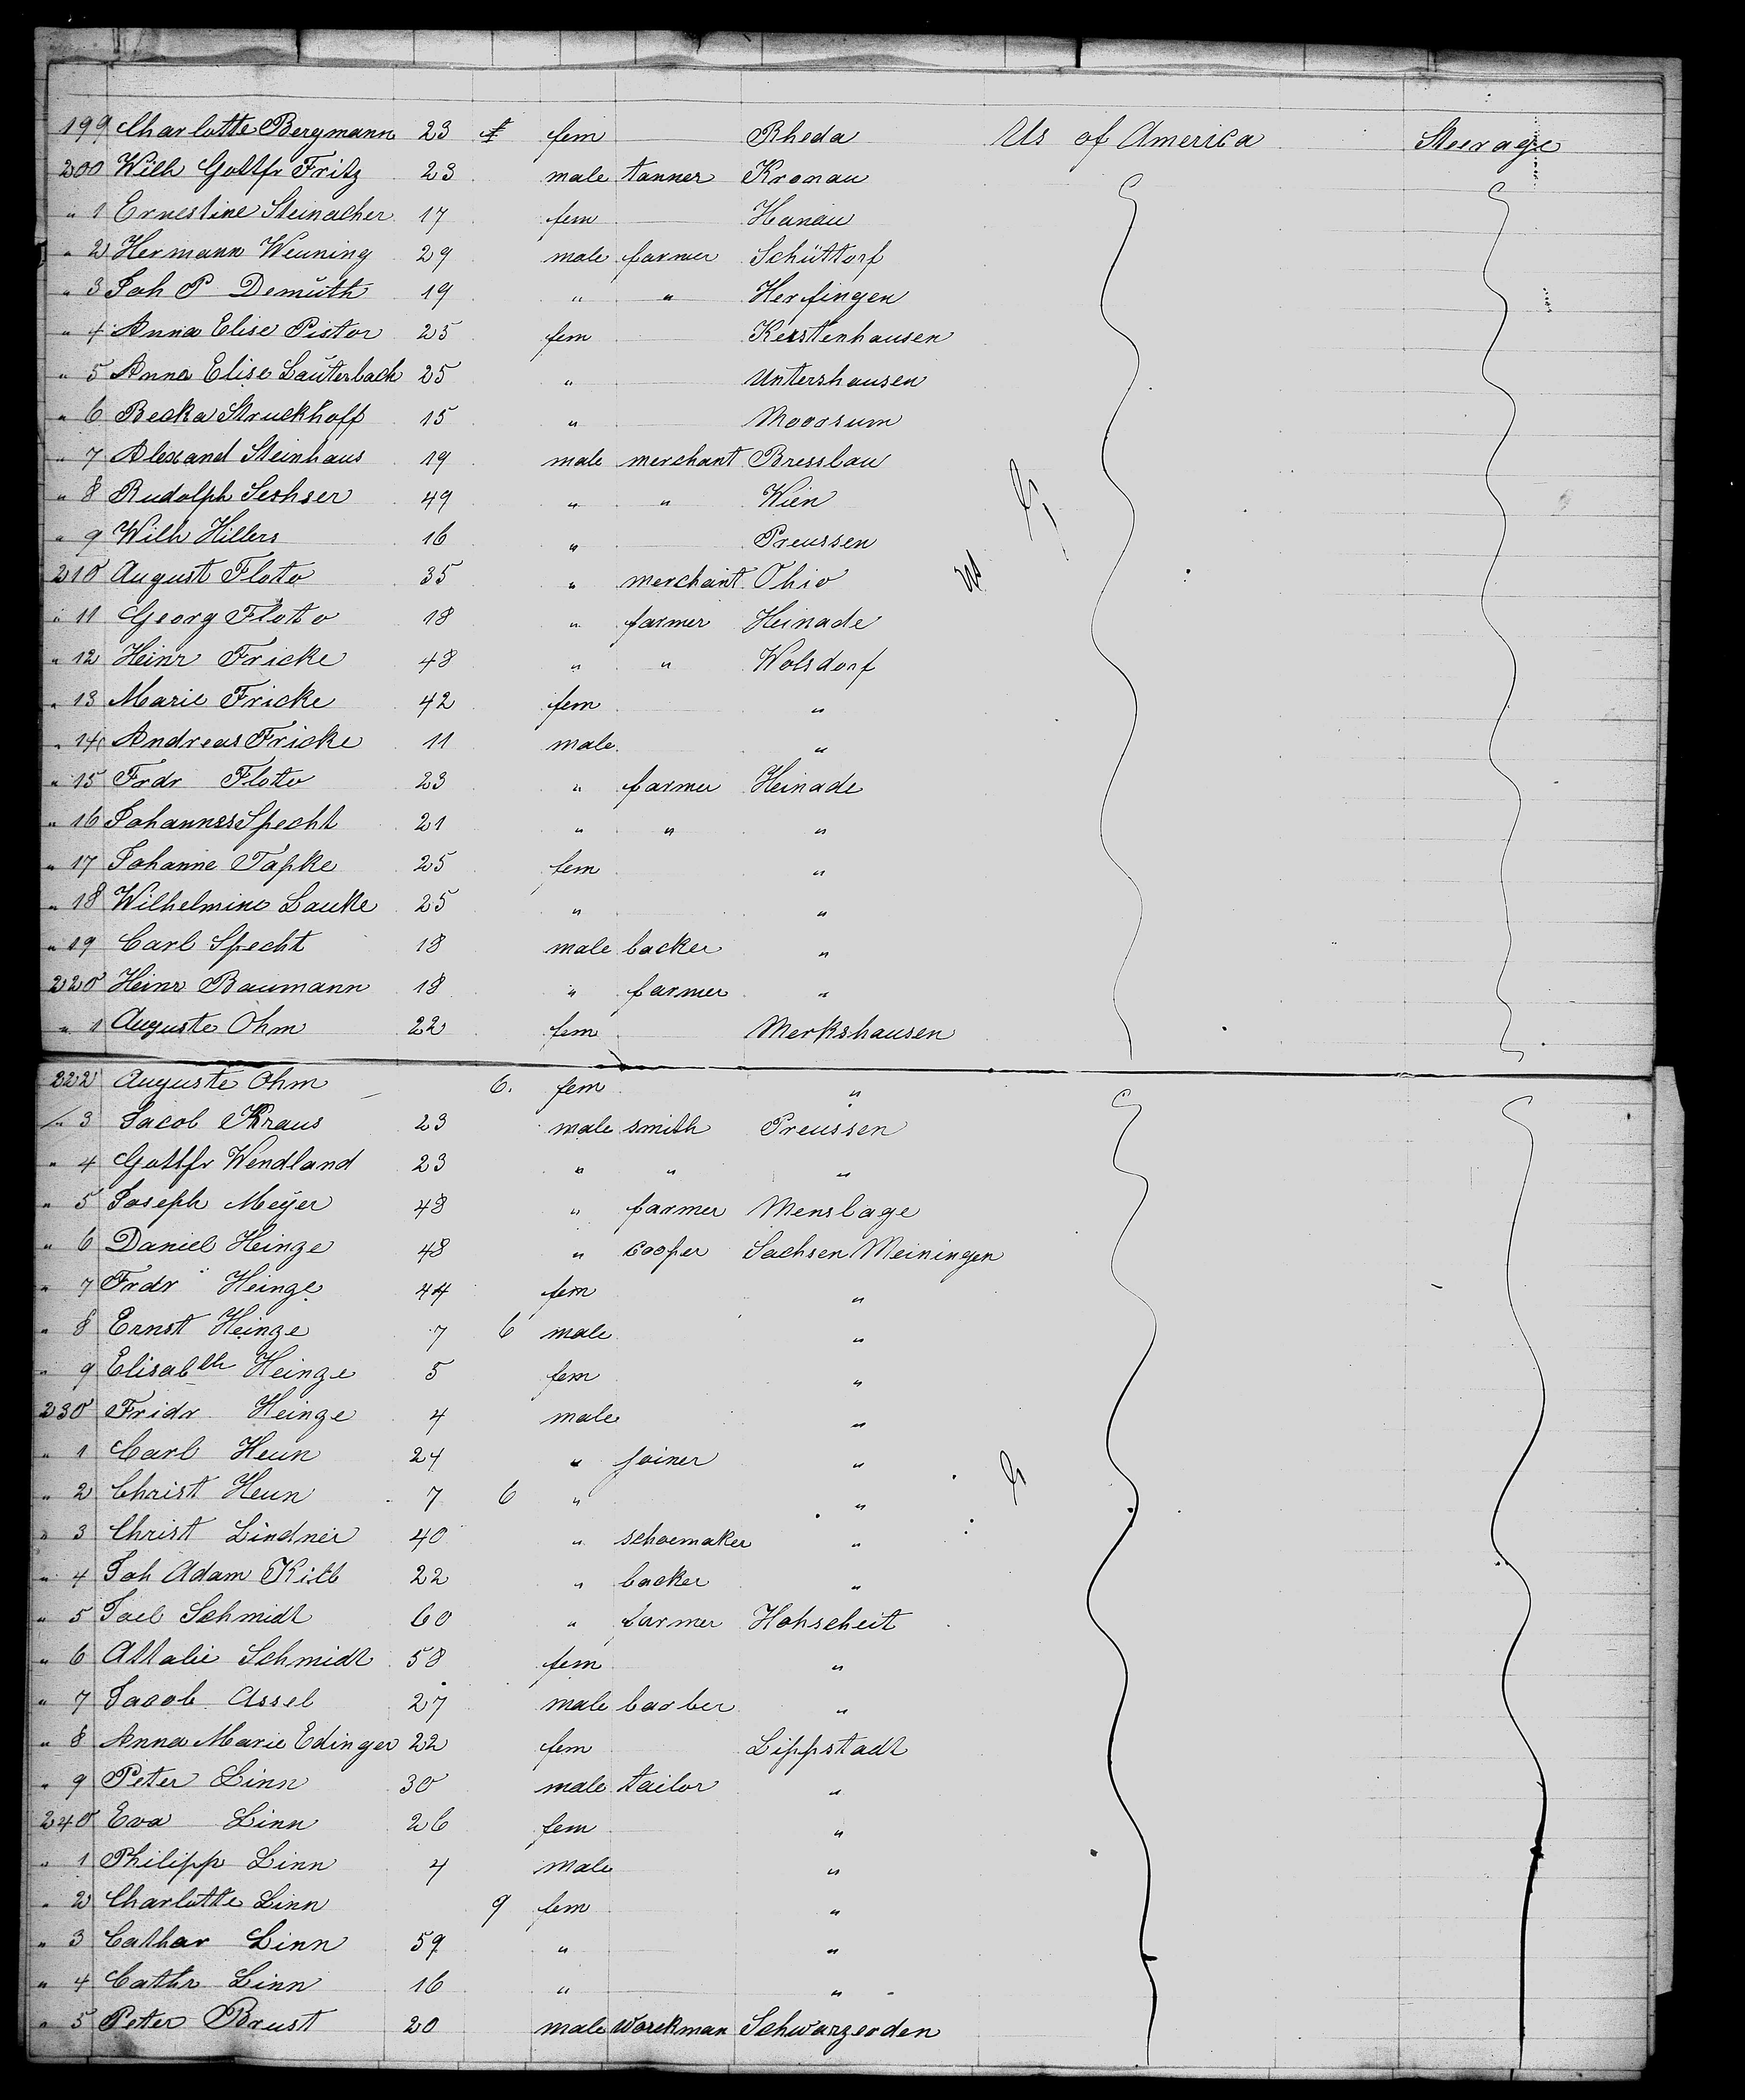 199 Charlotte Bergmann 23 fem Rheda Us of America Steerage
200 Wilh Gottfr Fritz 23 male tanner Kronau
" 1 Ernestine Steinacher 17 fem Hanau
" 2 Hermann Weuning 29 male farmer Schüttorf
" 3 Joh P Demuth 19 " " Herfingen
" 4 Anna Elise Pistor 25 fem Kerstenhausen
" 5 Anna Elise Lauterbach 25 " Untershausen
" 6 Becka Struckhoff 15 " Moorsum
" 7 Alexand Steinhaus 19 male merchant Bresslau
" 8 Rudolph Seohser 49 " " Wien
" 9 Wilh Hillers 16 " Preussen
210 August Floto 35 " merchant Ohio US
" 11 Georg Floto 18 " farmer Heinade
" 12 Heinr Fricke 48 " " Wolsdorf
" 13 Marie Fricke 42 fem "
" 14 Andreas Fricke 11 male "
" 15 Frdr Floto 23 " farmer Heinade
" 16 Johannes Specht 21 " " "
" 17 Johanne Tapke 25 fem "
" 18 Wilhelmine Lauke 25 " "
" 19 Carl Specht 18 male backer "
220 Heinr Baumann 18 " farmer "
" 1 Auguste Ohm 22 fem Merkshausen
222 Auguste Ohm 6. fem "
" 3 Jacob Kraus 23 male smith Preussen
" 4 Gottfr Wendland 23 " " "
" 5 Joseph Meyer 48 " farmer Menslage
" 6 Daniel Heinze 48 " cooper Sachsen Meiningen
" 7 Frdr " Heinze 44 fem "
" 8 Ernst Heinze 7 6 male "
" 9 Elisabth Heinze 5 fem "
230 Fridr Heinze 4 male "
" 1 Carl Heun 24 " joiner "
" 2 Christ Heun 7 6 " "
" 3 Christ Lindner 40 " schoemaker "
" 4 Joh Adam Kilb 22 " backer "
" 5 Joel Schmidt 60 " farmer Hohscheit
" 6 Attalie Schmidt 58 fem "
" 7 Jacob Assel 27 male barber "
" 8 Anna Marie Edinger 22 fem Lippstadt
" 9 Peter Linn 30 male tailor "
240 Eva Linn 26 fem "
" 1 Philipp Linn 4 male "
" 2 Charlotte Linn 9 fem "
" 3 Cathar Linn 59 " "
" 4 Cathr Linn 16 " "
" 5 Peter Brust 20 male workman Schwarzerden